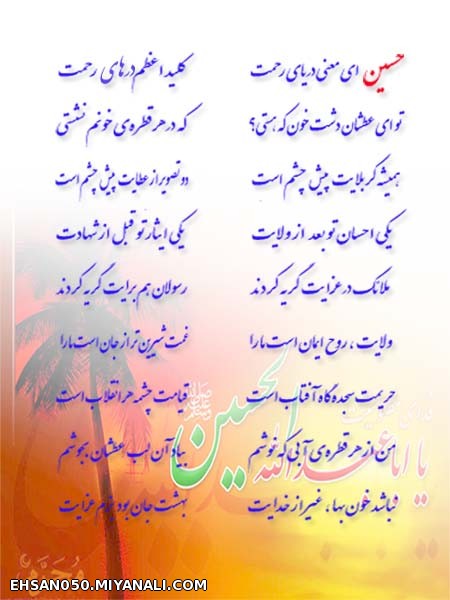 حسین ای معنی دریای رحمت کلید اعظم درهای رحمت
تو ای عطشان دشت خون که هستی؟ که در هر قطره‌ی خونم نشستی
همیشه کربلایت پیش چشم است دو تصویر از عطایت پیش چشم است
یکی احسان تو بعد از ولایت یکی ایثار تو قبل از شهادت
ملائک در عزایت گریه کردند رسولان هم برایت گریه کردند
ولایت، روح ایمان است ما را غمت شیرین تر از جان است ما را
حریمت سجده گاه آفتاب است قیامت چشمه هر انقلاب است
من از هر قطره‌ی آبی که نوشم بیاد آن لب عطشان بجوشم
نباشد خون بها، غیر از خدایت بهشت جان بود بزم عزایت
الحسین
یا اباعبدالله
EHSAN050.MIYANALI.COM